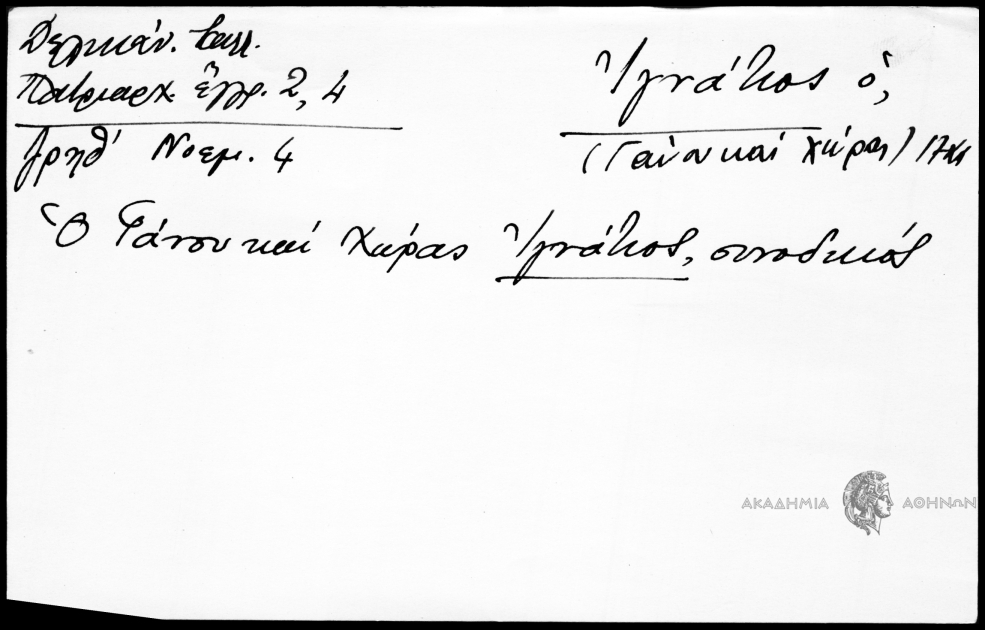 Δελικάν. Καλλ.
Πατριαρχ. ἔγγρ. 2, 4
Νοεμ. 4
Ἰγνάτιος ὁ,
(Γάνου καί Χώρας)
Ὁ Γάνου καί Χώρας Ἰγνάτιος, συνοδικός
ΑΚΑΔΗΜΙΑ ΑΘΗΝΩΝ